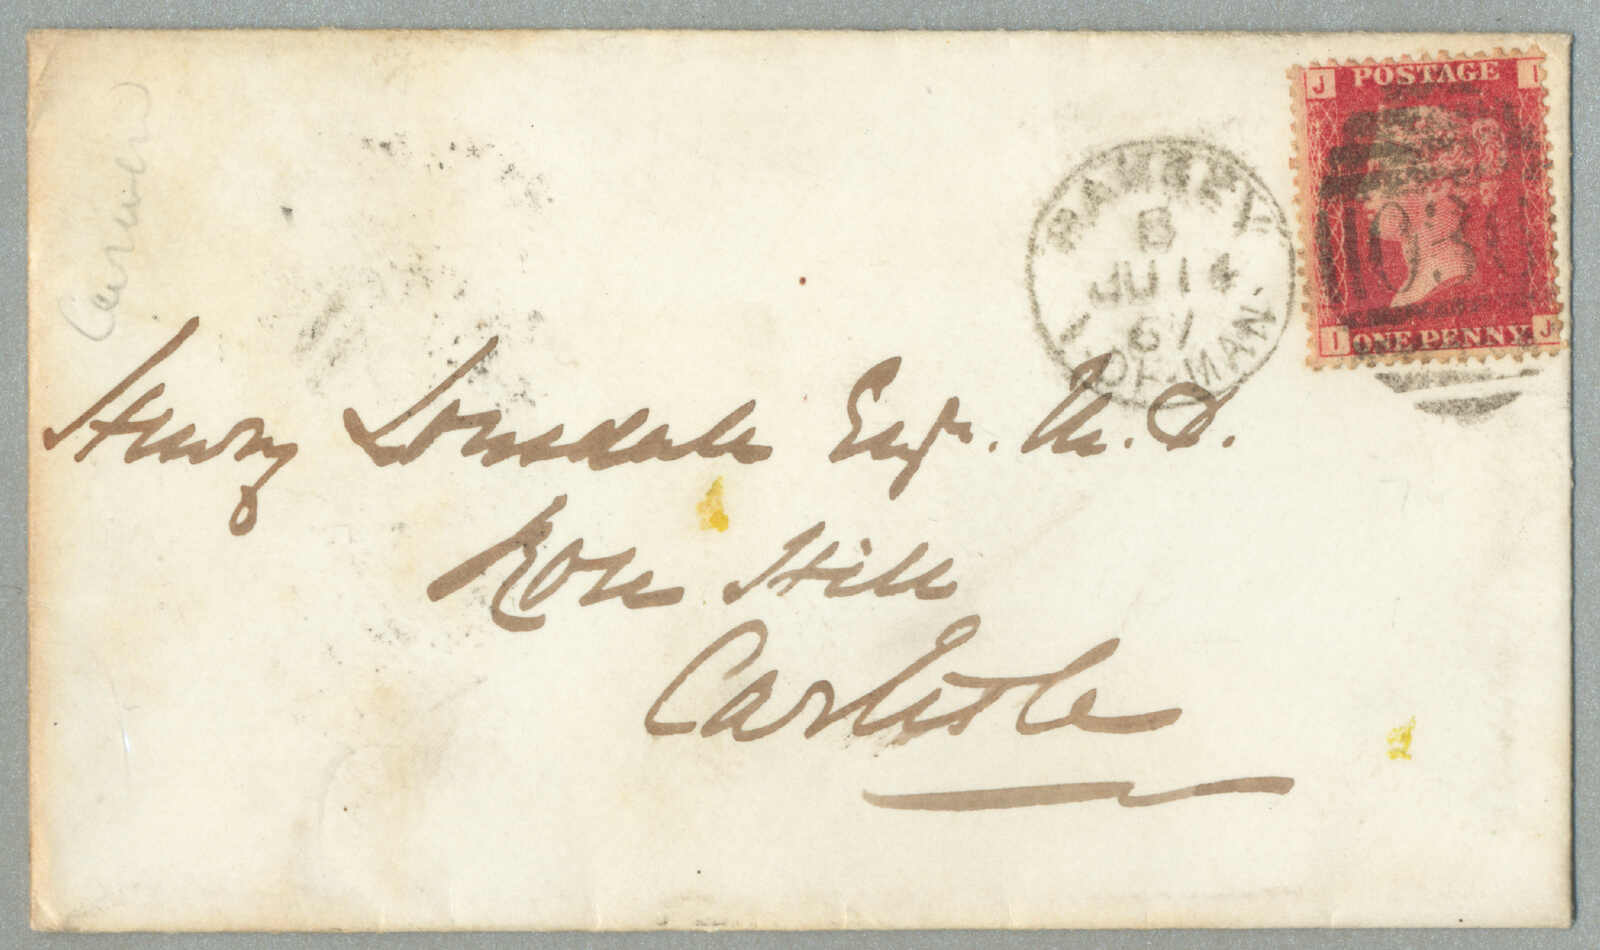 J POSTAGE I
I ONE PENNY. J
RAMSEY
B
JU 14
67
I. OF MAN.
Henry Lonsdale Esqr. M.D.
Rose Hill
Carlisle